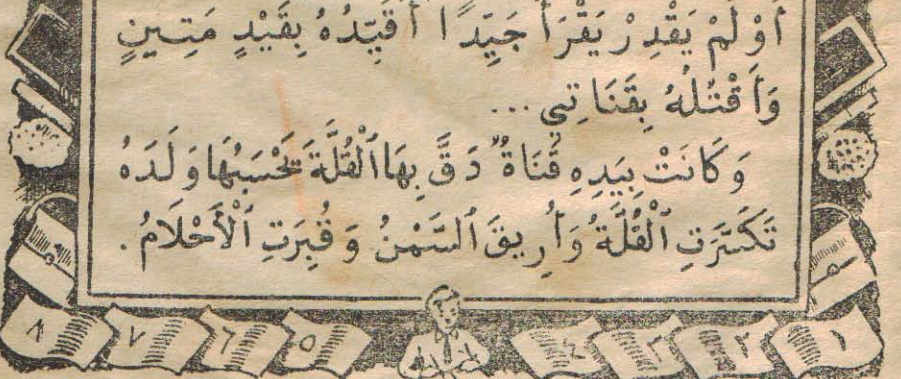 أَوْ لَمْ يَقْدِرْ يَقْرَأُ جَيِّدًا أُقَيِّدُهُ بِقَيْدٍ مَتِينٍ
وَأَقْتُلُهُ بِقَنَاتِي ...
وَكَانَتْ بِيَدِهِ قَنَاةٌ دَقَّ بِهَا ٱلْقُلَّةَ يَحْسَبُهَا وَلَدَهُ
تَكَسَّرَتِ ٱلْقُلَّةُ وَأُرِيقَ ٱلسَّمْنُ وَقُبِرَتِ ٱلْأَحْلَامُ .
١ ٢ ٣ ٤ ٥ ٦ ٧ ٨